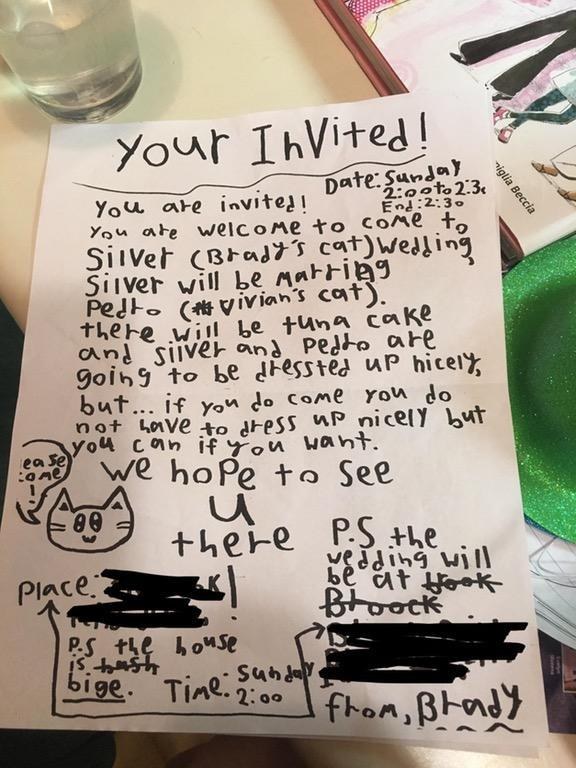 Your Invited!
Date: Sunday
2:00 to 2:30
End: 2:30
You are invited!
You are welcome to come to
Silver (Brady's cat) Wedding,
Silver will be Marring
Pedro (Vivian's cat).
there will be tuna cake
and silver and Pedro are
going to be dressted up nicely,
but... if you do come you do
not have to dress up nicely but
you can if you want.
ease
come!
We hope to see
u
there
P.S the
wedding will
be at
Place:
P.S the house
is
bige.
Time: Sunday
2:00
from, Brady
niglia Beccia